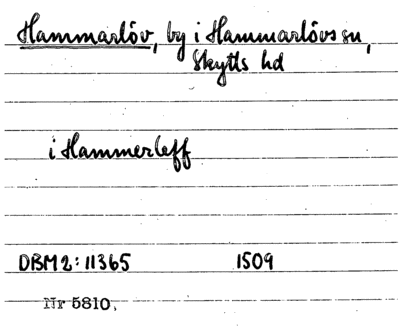 Hammarlöv, by i Hammarlövs sn,
Skytts hd
i Hammerleff
DBM 2: 11365 1509
Nr 5810,